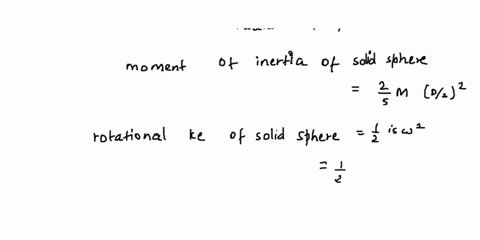 moment of inertia of solid sphere
= 2/5 M (D/2)²
rotational ke of solid sphere = 1/2 is ω²
= 1/2